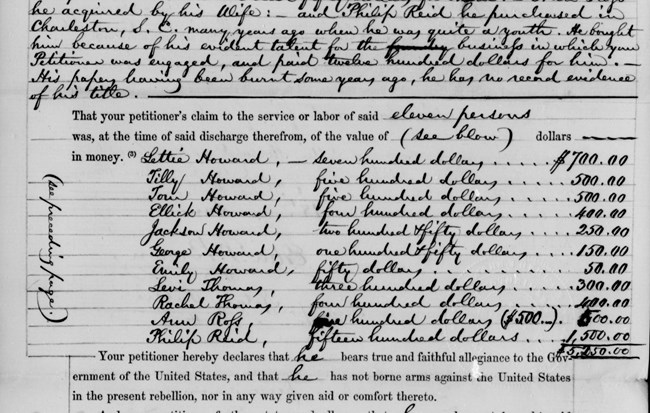 he acquired by his Wife: - and Philip Reid he purchased in
Charleston, S. C. many years ago when he was quite a youth. He bought
him because of his evident talent for the business in which your
Petitioner was engaged, and paid twelve hundred dollars for him. -
His papers having been burnt some years ago, he has no record evidence
of his title.
That your petitioner's claim to the service or labor of said eleven persons
was, at the time of said discharge therefrom, of the value of (see blow) dollars
in money. (3) Lettie Howard, - seven hundred dollars ..... $700.00
Tilly Howard, five hundred dollars ..... 500.00
Tom Howard, five hundred dollars ..... 500.00
Ellick Howard, four hundred dollars ..... 400.00
Jackson Howard, two hundred & fifty dollars ..... 250.00
George Howard, one hundred & fifty dollars ..... 150.00
Emily Howard, fifty dollars ..... 50.00
Levi Thomas, three hundred dollars ..... 300.00
Rachel Thomas, four hundred dollars ..... 400.00
Ann Ross, five hundred dollars ($500..) .. 500.00
Philip Reid, fifteen hundred dollars ... 1,500.00
$5,250.00
(see preceding page.)
Your petitioner hereby declares that he bears true and faithful allegiance to the Gov-
ernment of the United States, and that he has not borne arms against the United States
in the present rebellion, nor in any way given aid or comfort thereto.